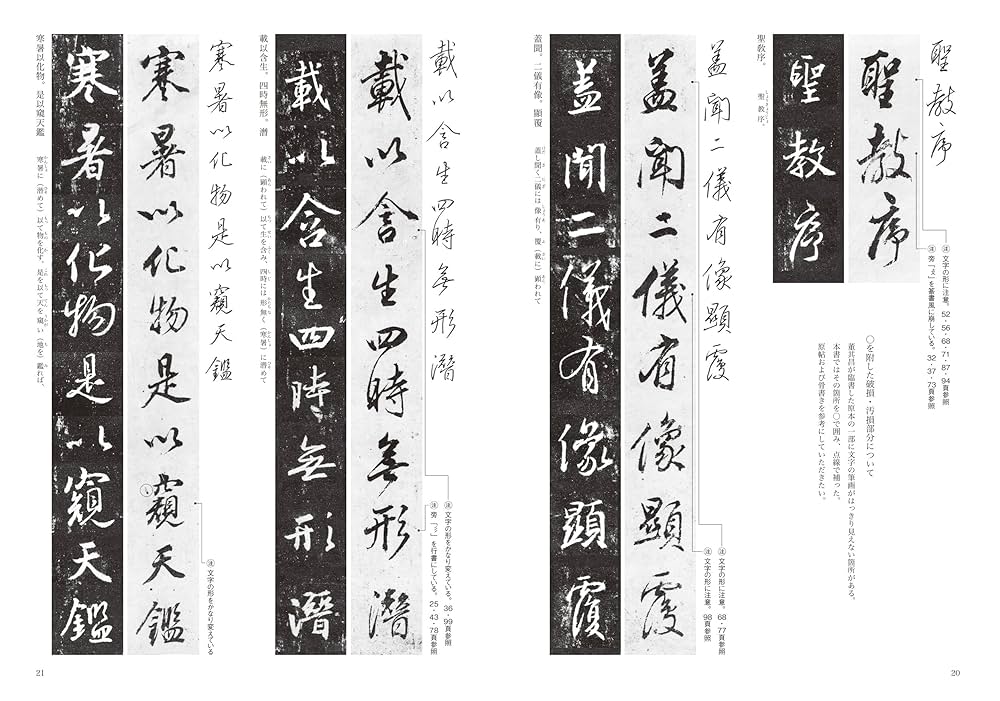 聖教序
㊟ 文字の形に注意。52・56・68・71・87・94頁参照
㊟ 旁「攵」を篆書風に崩している。32・37・73頁参照
聖教序
聖教序
聖教序。
聖教序。
〇を附した破損・汚損部分について
董其昌が臨書した原本の一部に文字の筆画がはっきり見えない箇所がある。
本書ではその箇所を〇で囲み、点線で補った。
原帖および骨書きを参考にしていただきたい。
蓋聞二儀有像顯覆
㊟ 文字の形に注意。68・77頁参照
㊟ 文字の形に注意。98頁参照
蓋聞二儀有像顯覆
蓋聞二儀有像顯覆
蓋聞。二儀有像。顯覆
蓋し聞く二儀には像有り、覆(載に)顕われて
20
載以含生四時無形潛
㊟ 文字の形をかなり変えている。36・99頁参照
㊟ 旁「彡」を行書にしている。25・43・78頁参照
載以含生四時無形潛
載以含生四時無形潛
載以含生。四時無形。潛
載に(顕われて)以て生を含み、四時には形無く(寒暑)に潜めて
寒暑以化物是以窺天鑑
㊟ 文字の形をかなり変えている
寒暑以化物是以窺天鑑
寒暑以化物是以窺天鑑
寒暑以化物。是以窺天鑑
寒暑に(潜めて)以て物を化す。是を以て天を窺い(地を)鑑れば、
21